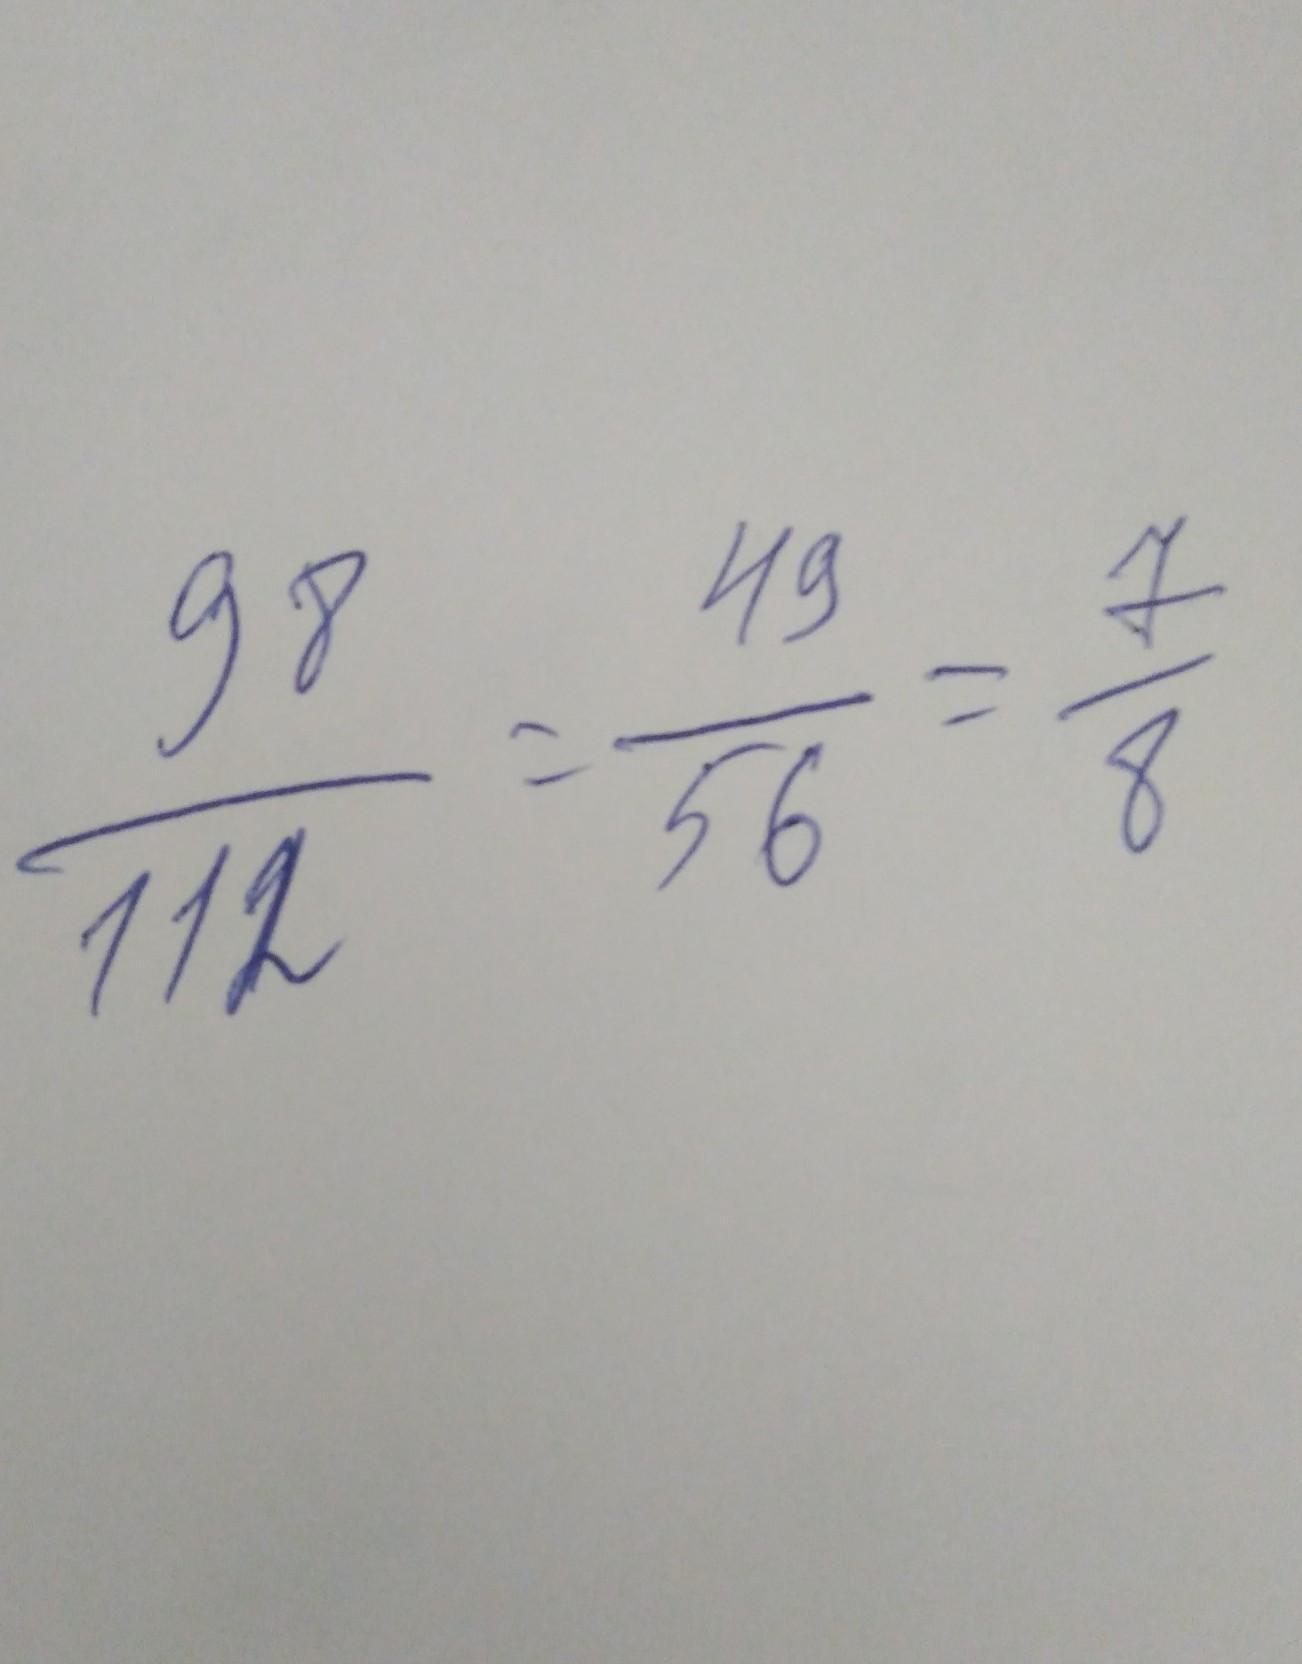 98/112 = 49/56 = 7/8